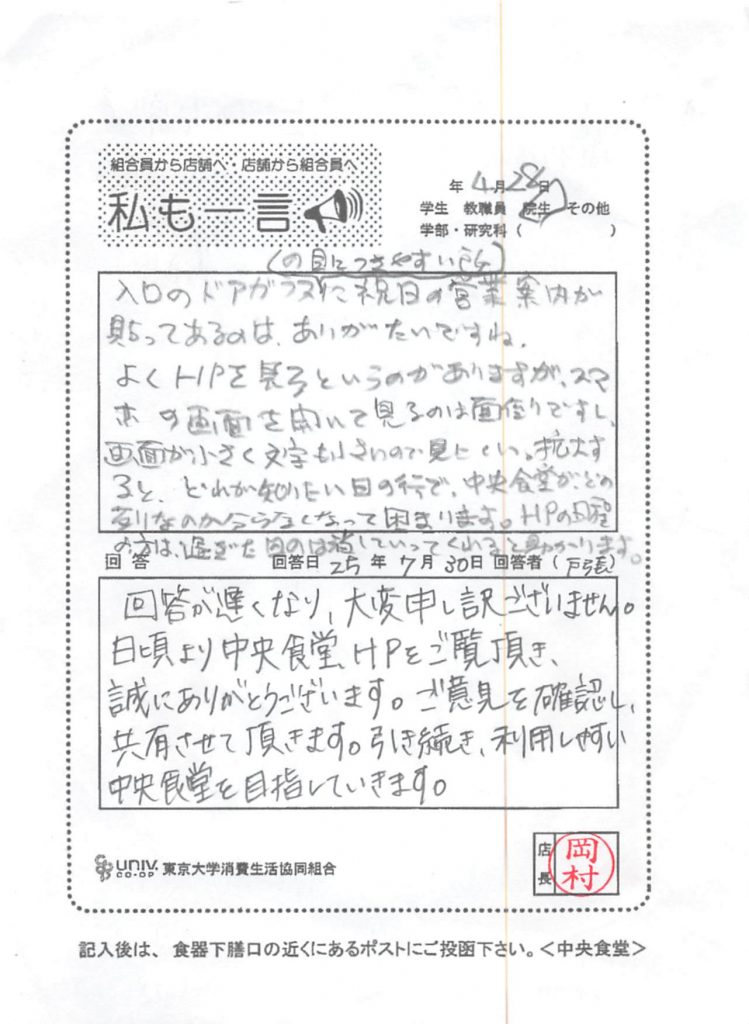 組合員から店舗へ・店舗から組合員へ
私も一言
年 4月28日
学生 教職員 院生 その他
学部・研究科( )
(の目につきやすい所)
入口のドアガラスに祝日の営業案内が
貼ってあるのは、ありがたいですね。
よくHPを見ろというのがありますが、スマ
ホの画面を開いて見るのは面倒りですし、
画面が小さく文字も小さいので見にくい。拡大す
ると、どれが知りたい日の行で、中央食堂が、どの
列なのか分らなくなって困まります。HPの日程
の方は、過ぎた日のは消していってくれると助かります。
回答 回答日 25年 7月 30日 回答者(戸張)
回答が遅くなり、大変申し訳ございません。
日頃より中央食堂、HPをご覧頂き、
誠にありがとうございます。ご意見を確認し、
共有させて頂きます。引き続き、利用しやすい
中央食堂を目指していきます。
UNIV. CO-OP 東京大学消費生活協同組合
店長 岡村
記入後は、食器下膳口の近くにあるポストにご投函下さい。<中央食堂>